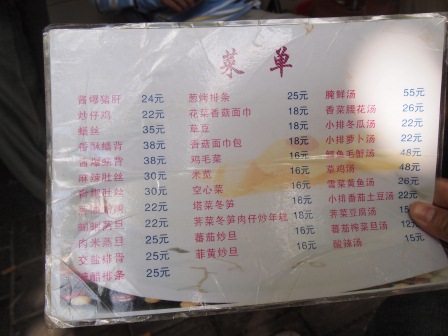 菜单
酱爆猪肝 24元
炒仔鸡 22元
鳝丝 35元
香酥鳝背 38元
酱爆鳝背 38元
麻辣肚丝 30元
肚丝 30元
22元
蒸旦 22元
肉米蒸旦 25元
交盐排骨 25元
糖醋排条 25元
葱烤排条 25元
花菜香菇面巾 18元
草豆 18元
香菇面巾包 18元
鸡毛菜 16元
米苋 16元
空心菜 16元
塔菜冬笋 18元
荠菜冬笋肉仔炒年糕 18元
蕃茄炒旦 16元
韭黄炒旦 16元
腌鲜汤 55元
香菜腰花汤 26元
小排冬瓜汤 22元
小排萝卜汤 22元
鲫鱼毛蟹汤 48元
草鸡汤 48元
雪菜黄鱼汤 26元
小排番茄土豆汤 22元
荠菜豆腐汤 15元
蕃茄榨菜旦汤 12元
酸辣汤 15